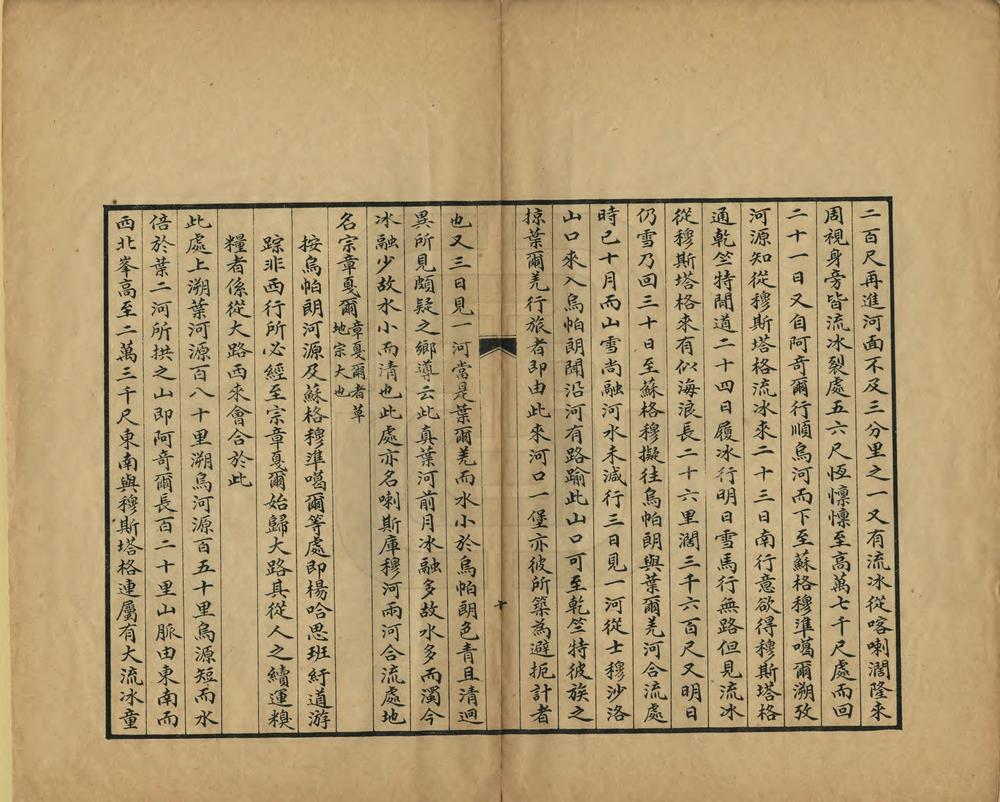 二百尺再進河面不及三分里之一又有流冰從喀喇濶隆來
周視身旁皆流冰裂處五六尺恆懍懍至高萬七千尺處而回
二十一日又自阿奇爾行順烏河而下至蘇格穆準噶爾溯攷
河源知從穆斯塔格流冰來二十三日南行意欲得穆斯塔格
通乾竺特間道二十四日履冰行明日雪馬行無路但見流冰
從穆斯塔格來有似海浪長二十六里濶三千六百尺又明日
仍雪乃回三十日至蘇格穆擬往烏帕朗與葉爾羌河合流處
時已十月而山雪尚融河水未減行三日見一河從士穆沙洛
山口來入烏帕朗聞沿河有路踰此山口可至乾竺特彼族之
掠葉爾羌行旅者即由此來河口一堡亦彼所築為避扼計者
十
也又三日見一河當是葉爾羌而水小於烏帕朗色青且清迥
異所見頗疑之鄉導云此真葉河前月冰融多故水多而濁今
冰融少故水小而清也此處亦名喇斯庫穆河兩河合流處地
名宗章戛爾章戛爾者草地宗大也
按烏帕朗河源及蘇格穆準噶爾等處即楊哈思班紆道游
踪非西行所必經至宗章戛爾始歸大路其從人之續運糗
糧者係從大路西來會合於此
此處上溯葉河源百八十里溯烏河源百五十里烏源短而水
倍於葉二河所拱之山即阿奇爾長百二十里山脈由東南而
西北峯高至二萬三千尺東南與穆斯塔格連屬有大流冰重